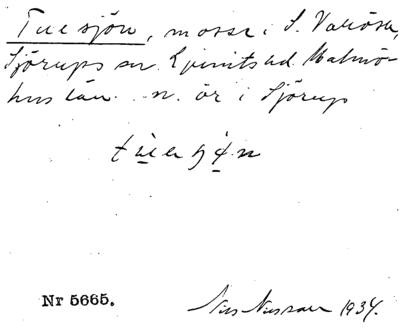 Tuesjön, mosse i S. Vallösa,
Sjörups sn. Ljunits hd. Malmö-
hus län. n. ör i Sjörup
Nr 5665.
Nils Nilsson 1934.